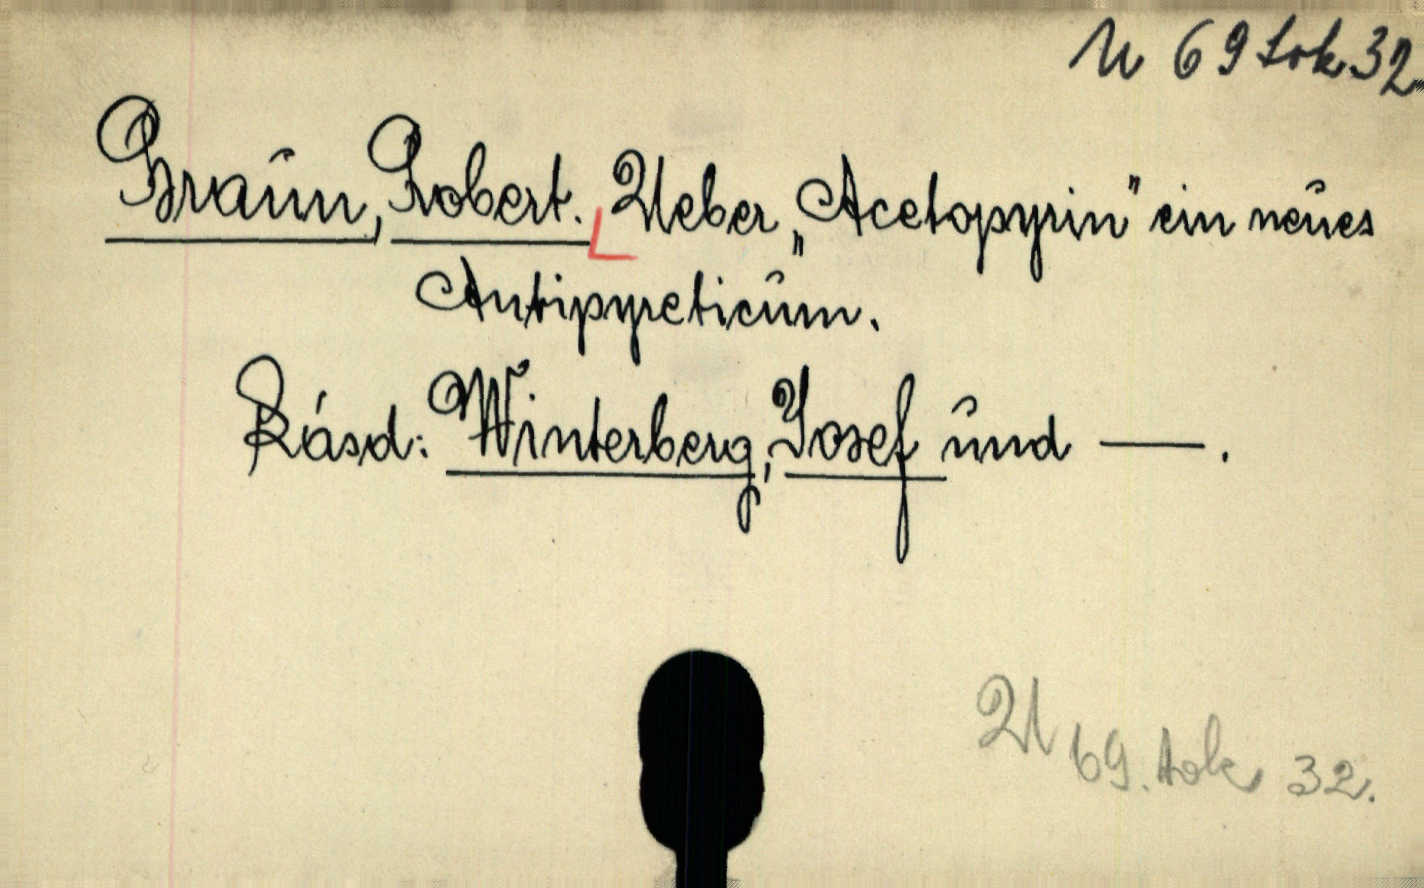 U 69 Sok 32
Braun, Robert. Ueber „Acetopyrin" ein neues
Antipyreticum.
Lásd: Winterberg, Josef und —.
U 69. sok 32.